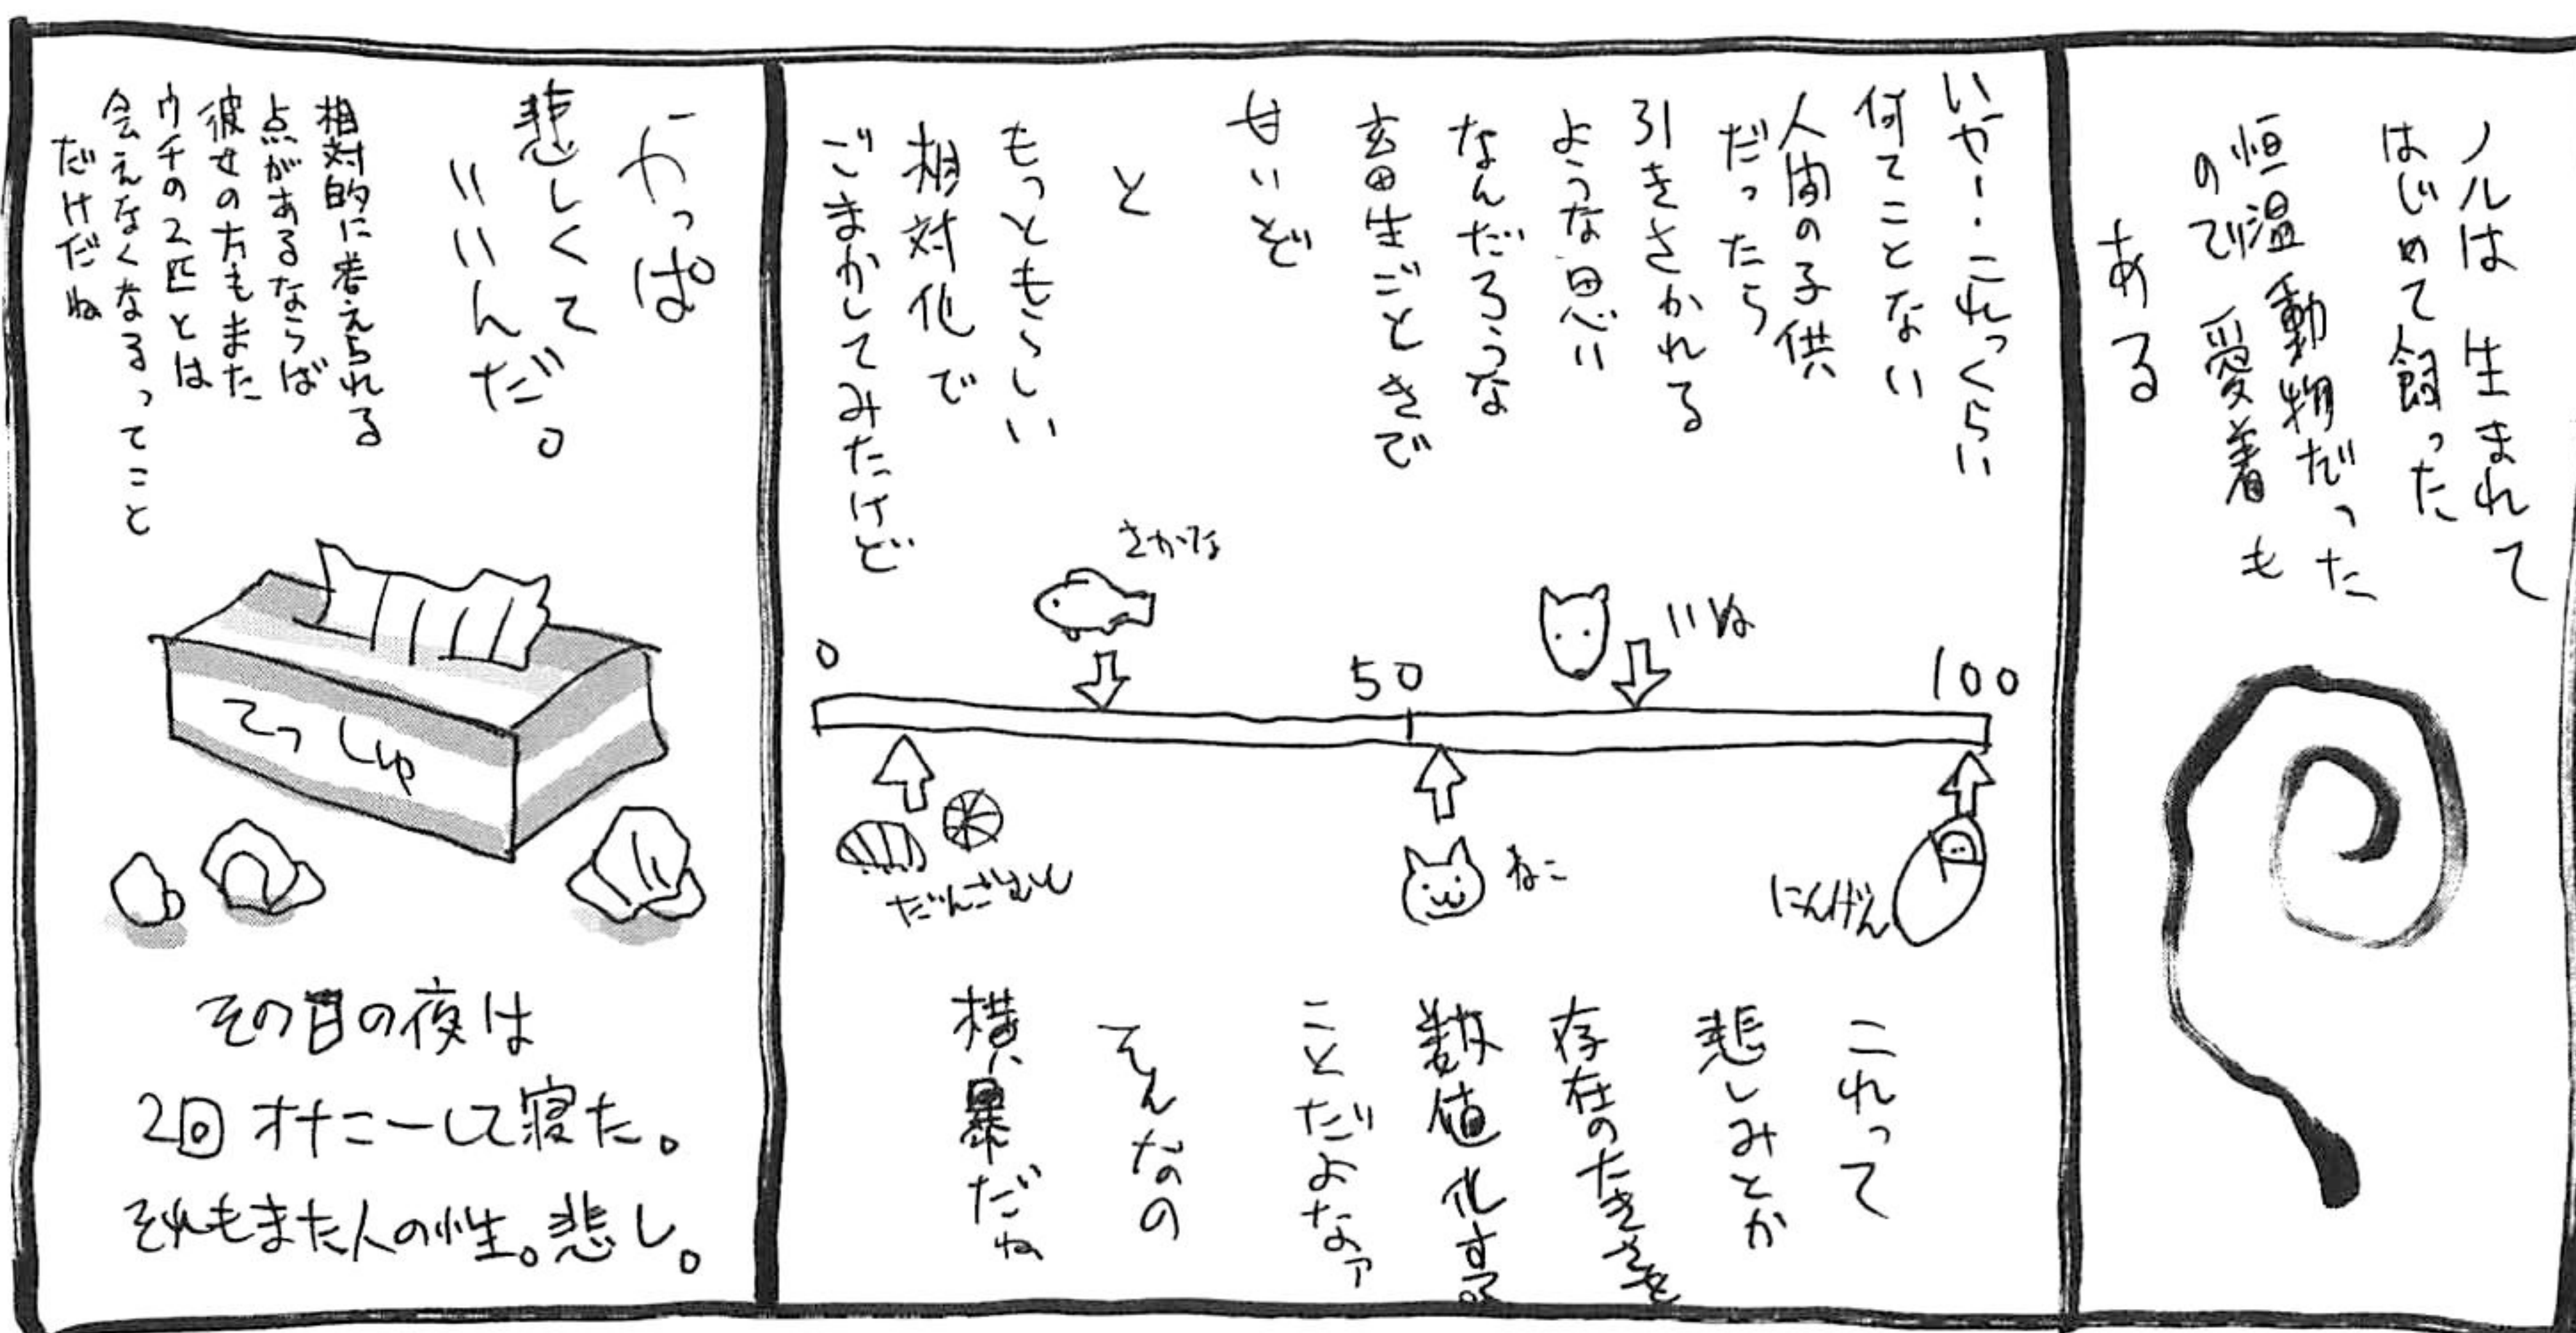 ノルは 生まれて
はじめて飼った
恒温動物だった
ので 愛着も
ある
いやー・これっくらい
何てことない
人間の子供
だったら
引きさかれる
ような思い
なんだろうな
玄田生ごときで
甘いぞ
と
もっともらしい
相対化で
ごまかしてみたけど
さかな
いぬ
0
50
100
だんごむし
ねこ
にんげん
これって
悲しみとか
存在の大きさを
数値化する
ことだよなァ
そんなの
横暴だね
やっぱ
悲しくて
いいんだ。
相対的に考えられる
点があるならば
彼女の方もまた
ウチの2匹とは
会えなくなるってこと
だけだね
てっしゅ
その日の夜は
2回オナニーして寝た。
それもまた人の性。悲し。